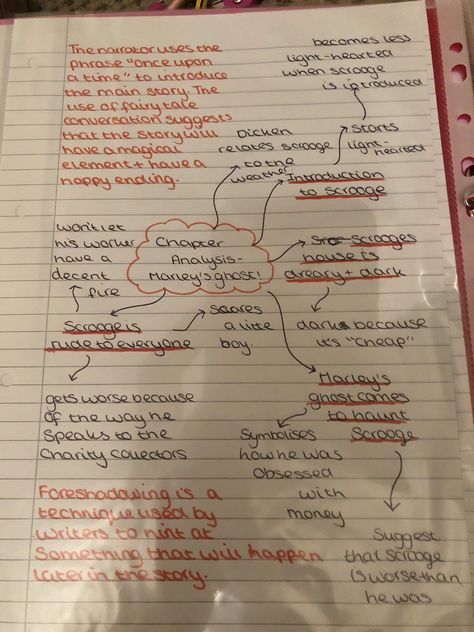 The narrator uses the
phrase "once upon
a time" to introduce
the main story. The
use of fairy tale
conversation suggests
that the story will
have a magical
element + have a
happy ending.
becomes less
light-hearted
when scrooge
is introduced
starts
light-hearted
Dicken
relates scrooge
to the
weather
Introduction
to scrooge
Chapter
Analysis-
Marley's ghost!
Scrooges
house is
dreary + dark
dark because
it's "cheap"
won't let
his worker
have a
decent
fire
Scrooge is
rude to everyone
Scares
a litte
boy.
gets worse because
of the way he
speaks to the
charity collectors
Marley's
ghost comes
to haunt
Scrooge
Symbolises
how he was
obsessed
with
money
Suggest
that scrooge
is worse than
he was
Foreshadowing is a
technique used by
writers to hint at
something that will happen
later in the story.